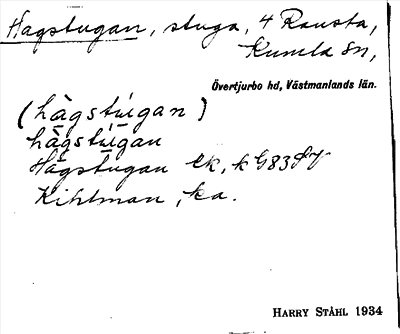 Hagstugan, stuga, 4 Ransta,
Kumla sn,
Övertjurbo hd, Västmanlands län.
(hàgstúgan)
hàgstúgan
Hagstugan ek, k
Kihlman, ka.
HARRY STÅHL 1934